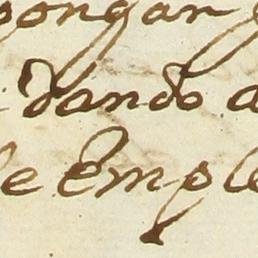 pongan
dando a
le Emple